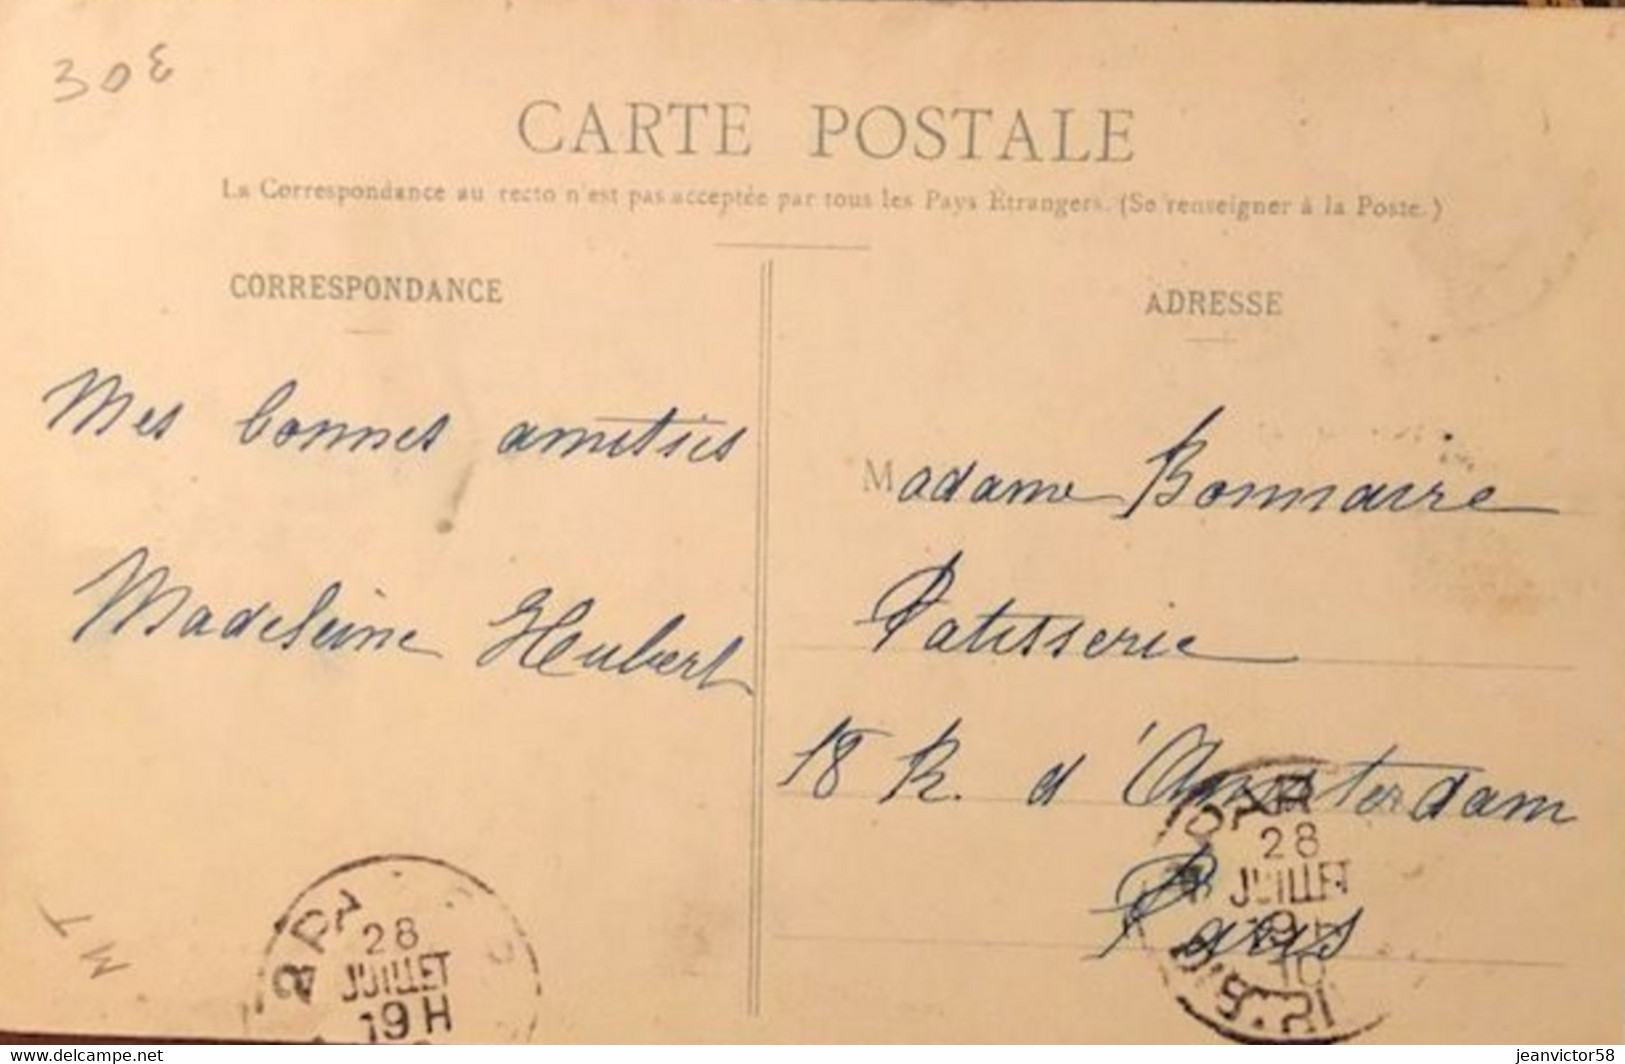 30 €
CARTE POSTALE
La Correspondance au recto n'est pas acceptée par tous les Pays Etrangers. (Se renseigner à la Poste.)
CORRESPONDANCE
Mes bonnes amitiés
Madeleine Hubert
ADRESSE
Madame Bonnaire
Patisserie
18 R. d'Amsterdam
Paris
28
JUILLET
19 H
28
JUILLET
10
MT
jeanvictor58